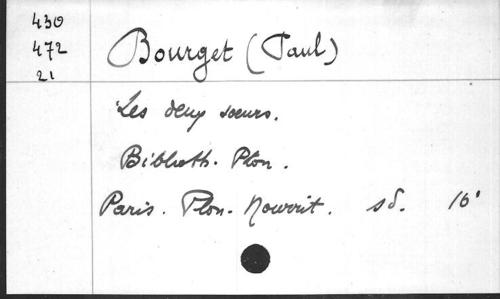 430
472
21
Bourget (Paul)
Les deux sœurs.
Biblioth. Plon.
Paris. Plon-Nourrit. sd. 16°